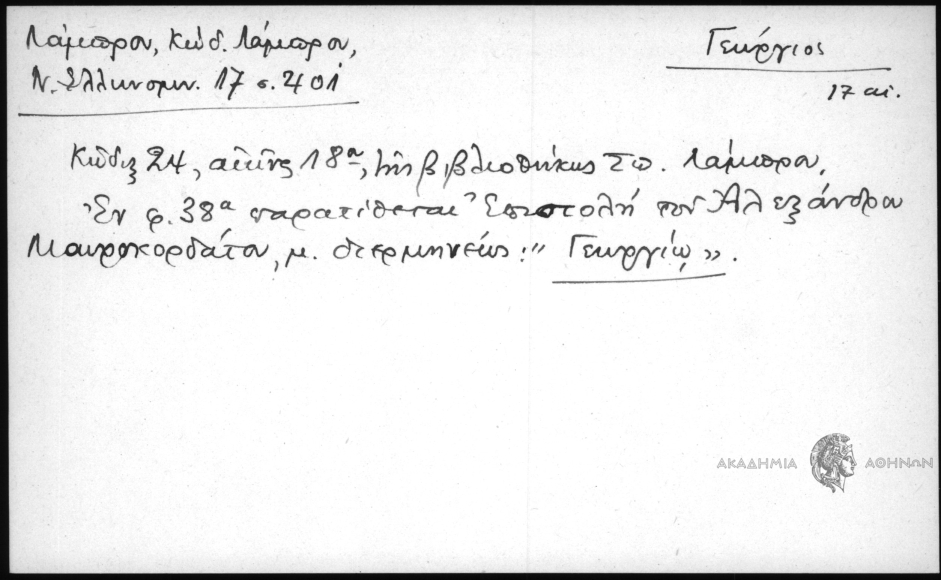 Λάμπρου, Κώδ. Λάμπρου,
Ν. Ἑλληνομν. 17 σ. 401
Γεώργιος
17 αἰ.
Κῶδιξ 24, αἰῶνος 18ου, τῆς βιβλιοθήκης Σπ. Λάμπρου,
Ἐν φ. 38α παρατίθεται Ἐπιστολή τοῦ Ἀλεξάνδρου
Μαυροκορδάτου, μ. διερμηνέως: "Γεωργίῳ».
ΑΚΑΔΗΜΙΑ ΑΘΗΝΩΝ